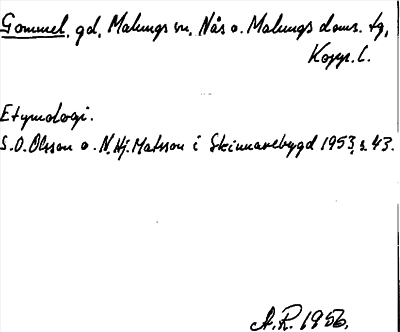 Gommel, gd, Malungs sn, Nås o. Malungs doms. tg,
Kopp. l.
Etymologi.
S.O. Olsson o. N. Hj. Matsson i Skinnarebygd 1953, s. 43.
A.R. 1956.